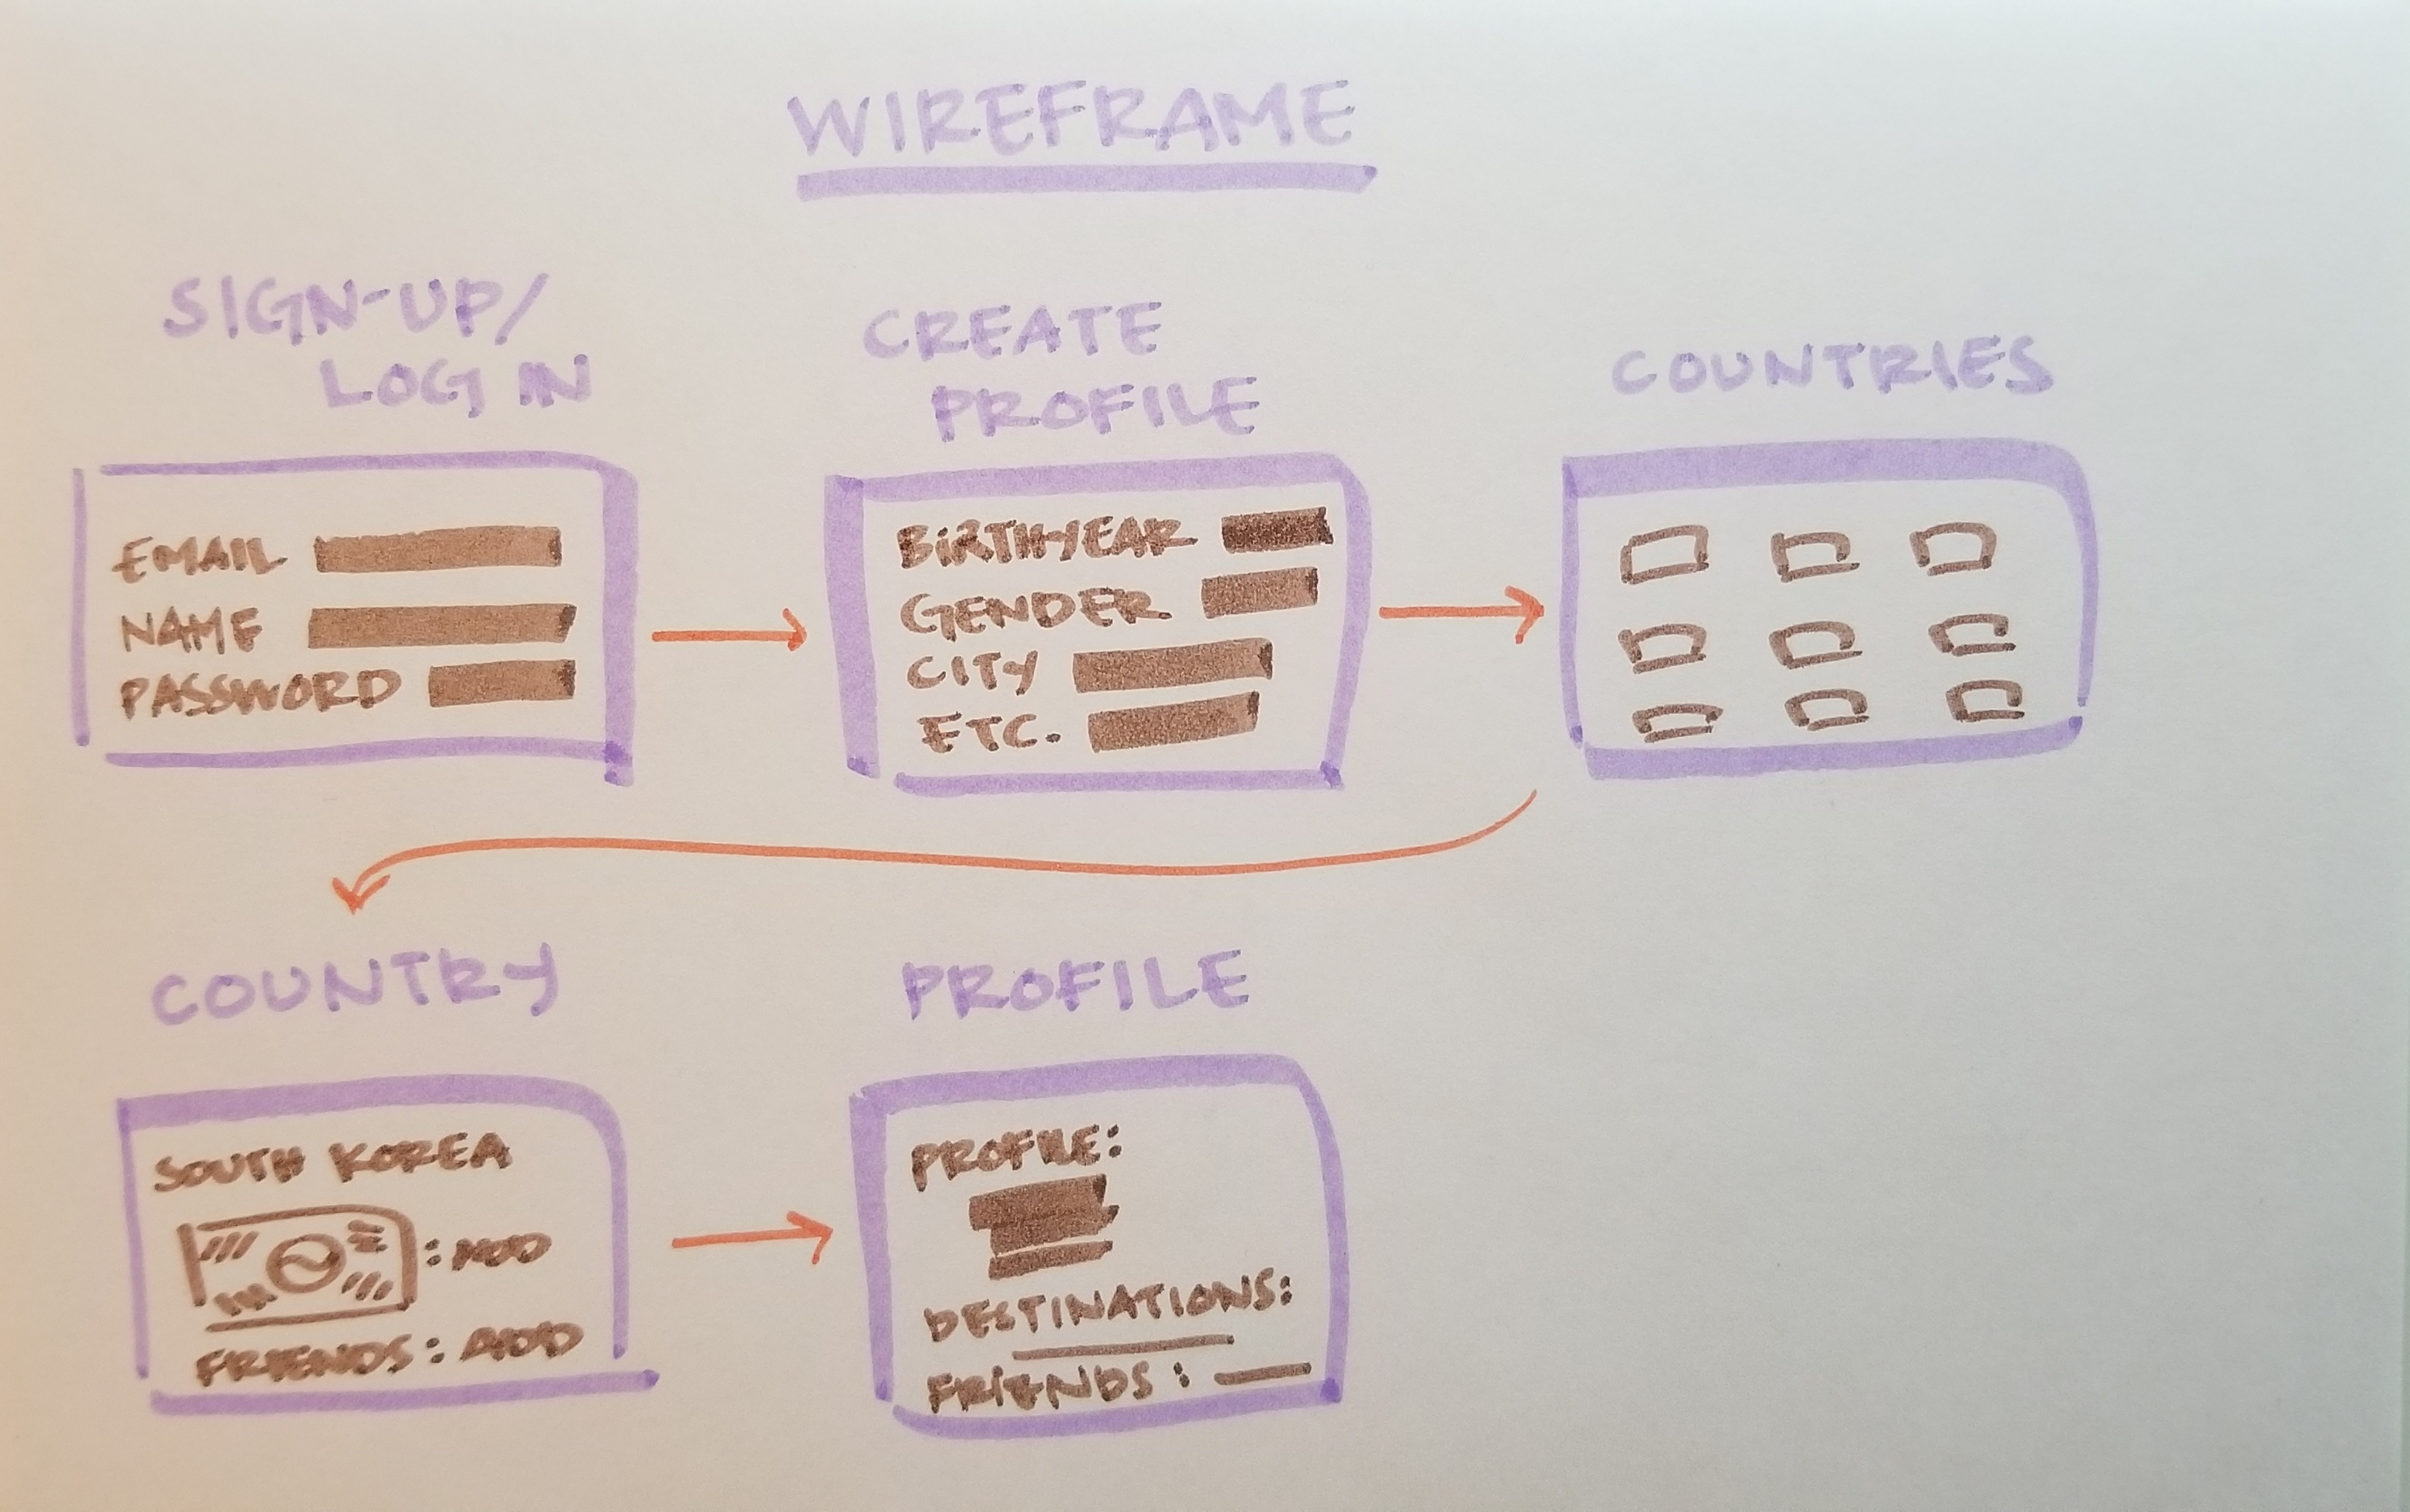 WIREFRAME
SIGN-UP/
LOG IN
EMAIL
NAME
PASSWORD
CREATE
PROFILE
BIRTHYEAR
GENDER
CITY
ETC.
COUNTRIES
COUNTRY
SOUTH KOREA
: ADD
FRIENDS: ADD
PROFILE
PROFILE:
DESTINATIONS:
FRIENDS: